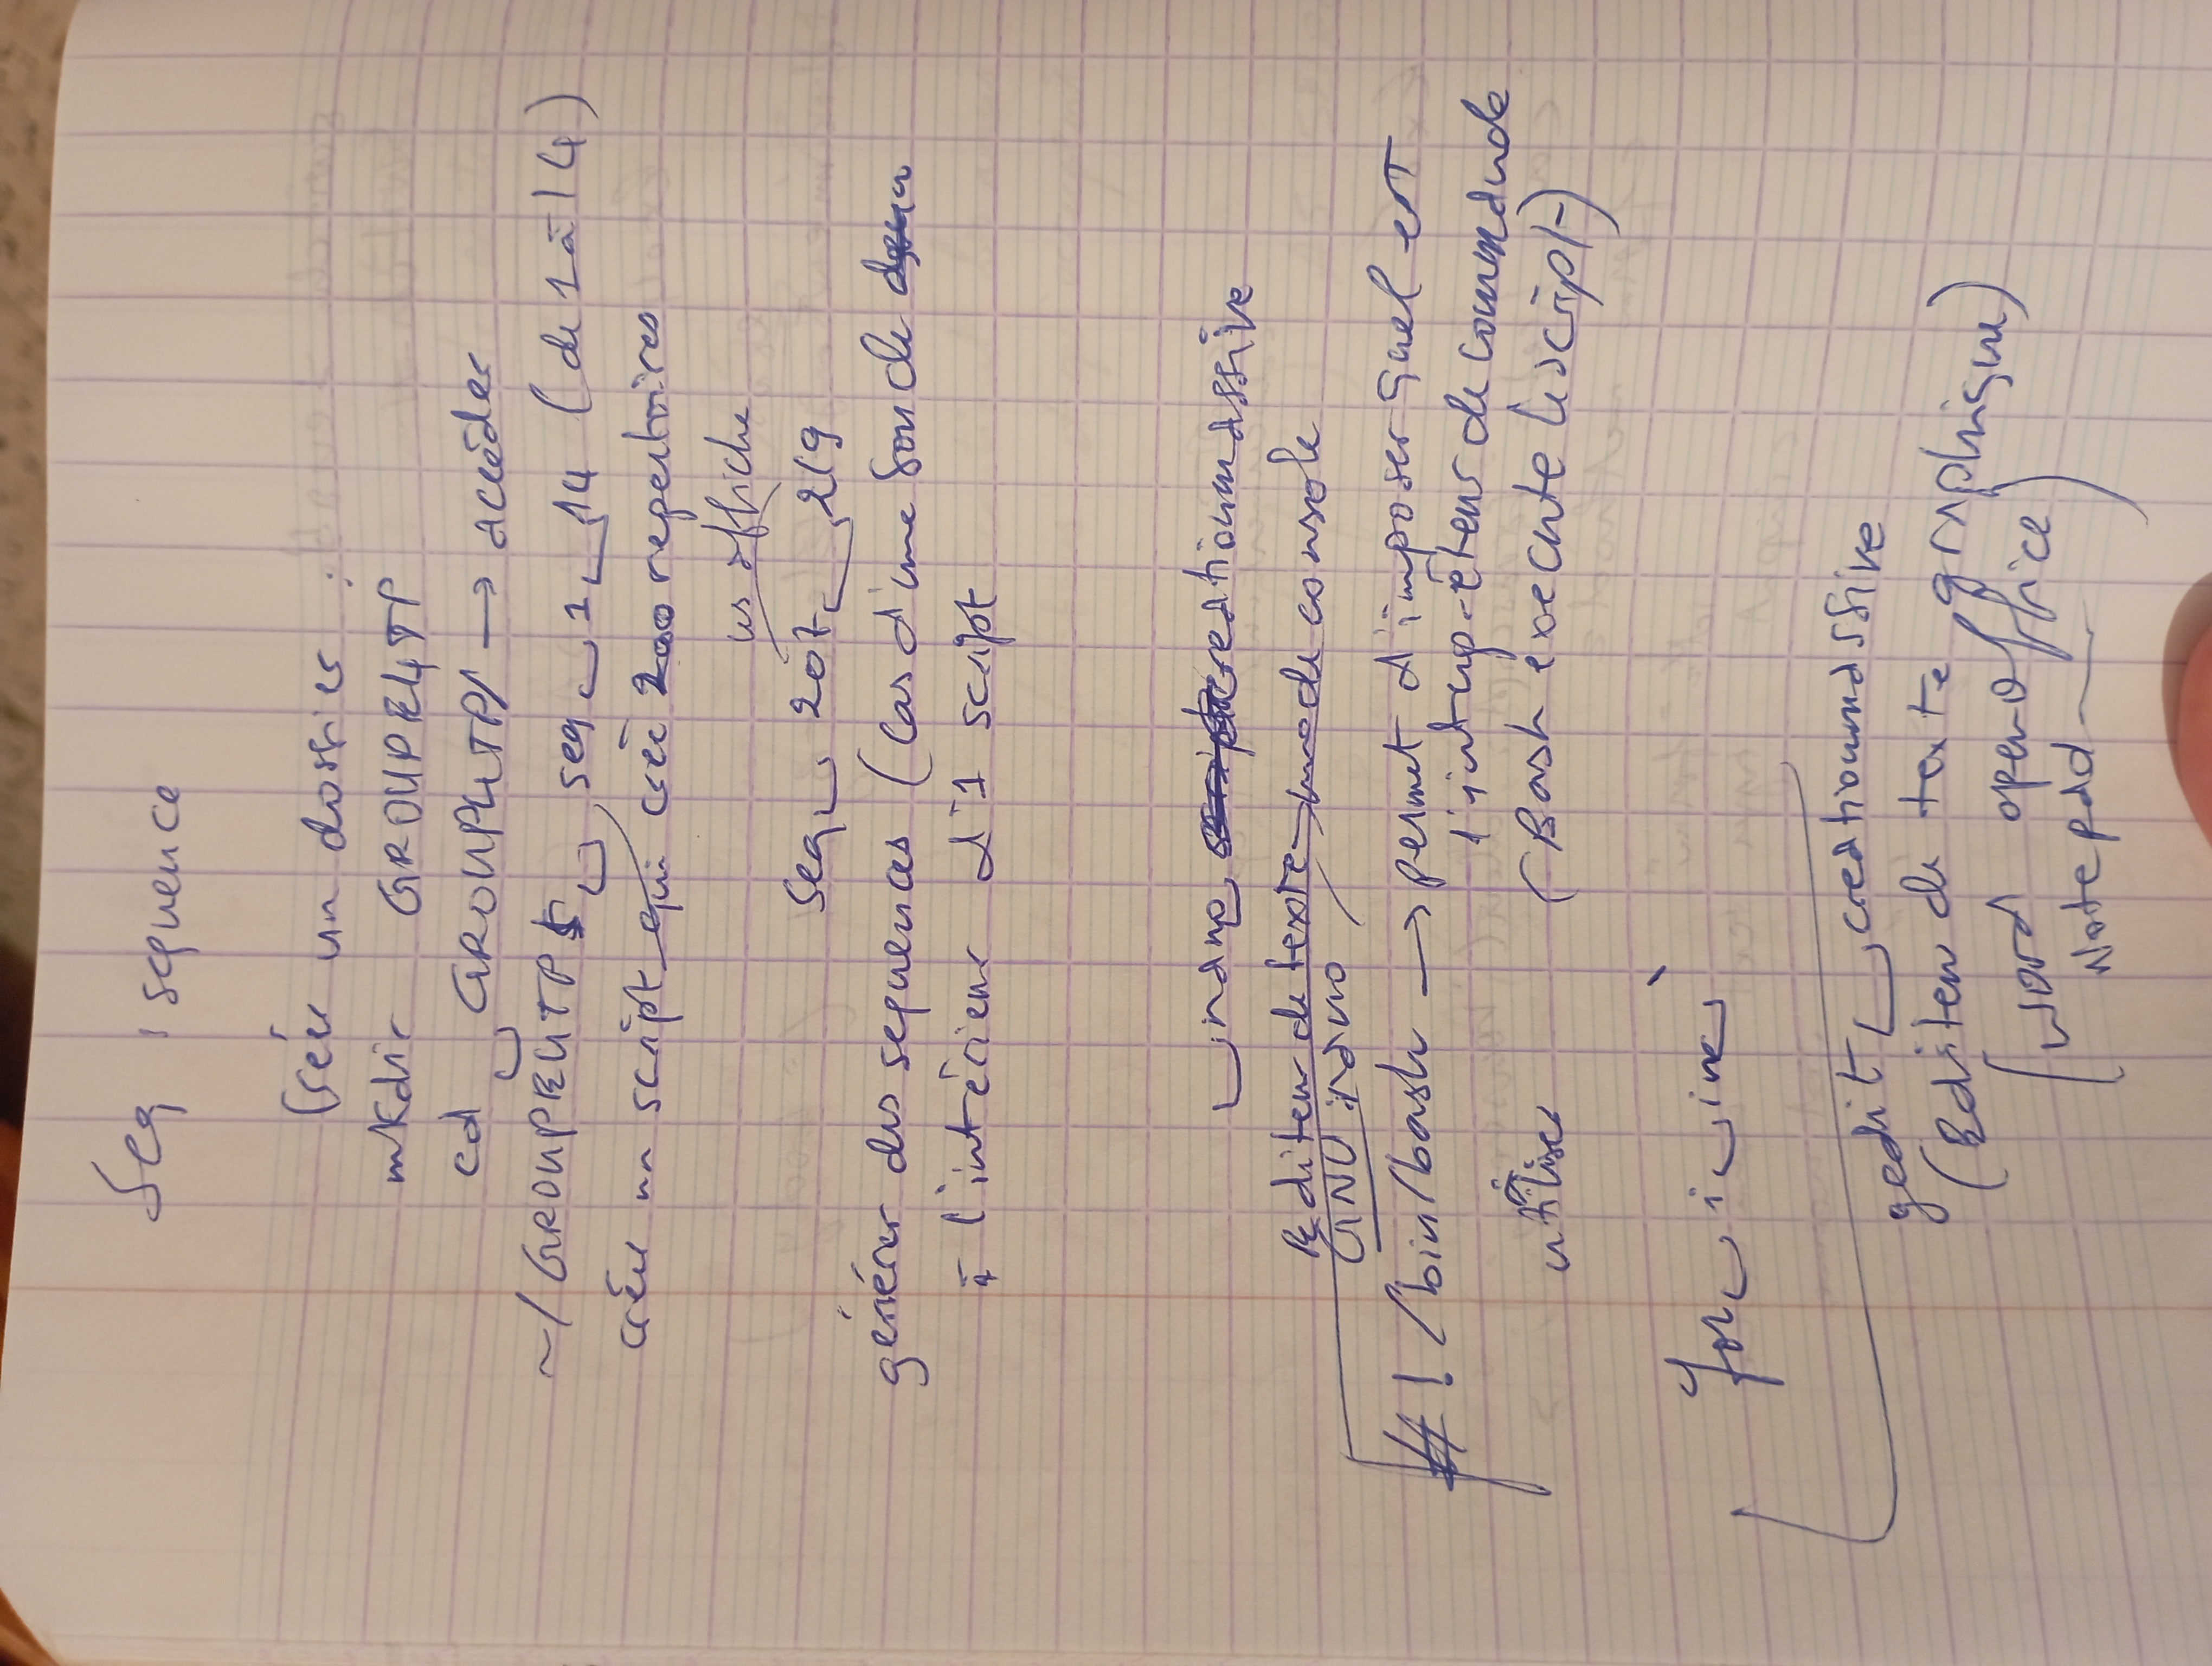 Seq : sequence
Créer un dossier :
mkdir GROUPE4TP
cd ␣ GROUP4TP/ → accéder
~/GROUPE4TP$ ␣ seq ␣ 1 ␣ 14 (de 1 à 14)
créer un script qui créé 200 repertoires
les affiche
Seq ␣ 207 ␣ 219
générer des sequences (Cas d'une boucle
à l'intérieur d'1 script
␣ nano ␣ creationmassive
Editeur de texte → mode console
GNU nano
#! /bin/bash → permet d'imposer quel est
l'interprêteur de commande
utiliser (Bash éxecute le script)
for ␣ i ␣ in ␣ `
gedit ␣ creationmassive
(Editeur de texte graphique)
(Word openOffice)
Notepad